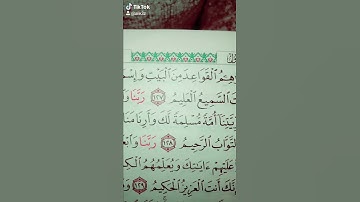 TikTok
هِـۧمُ ٱلْقَوَاعِدَ مِنَ ٱلْبَيْتِ وَإِسْمَـ
تَ ٱلسَّمِيعُ ٱلْعَلِيمُ ١٢٧ رَبَّنَا وَٱ
يَّتِنَآ أُمَّةً مُّسْلِمَةً لَّكَ وَأَرِنَا مَنَا
لتَّوَّابُ ٱلرَّحِيمُ ١٢٨ رَبَّنَا وَٱبْعَ
عَلَيْهِمْ ءَايَٰتِكَ وَيُعَلِّمُهُمُ ٱلْكِـ
نَّكَ أَنتَ ٱلْعَزِيزُ ٱلْحَكِيمُ ١٢٩